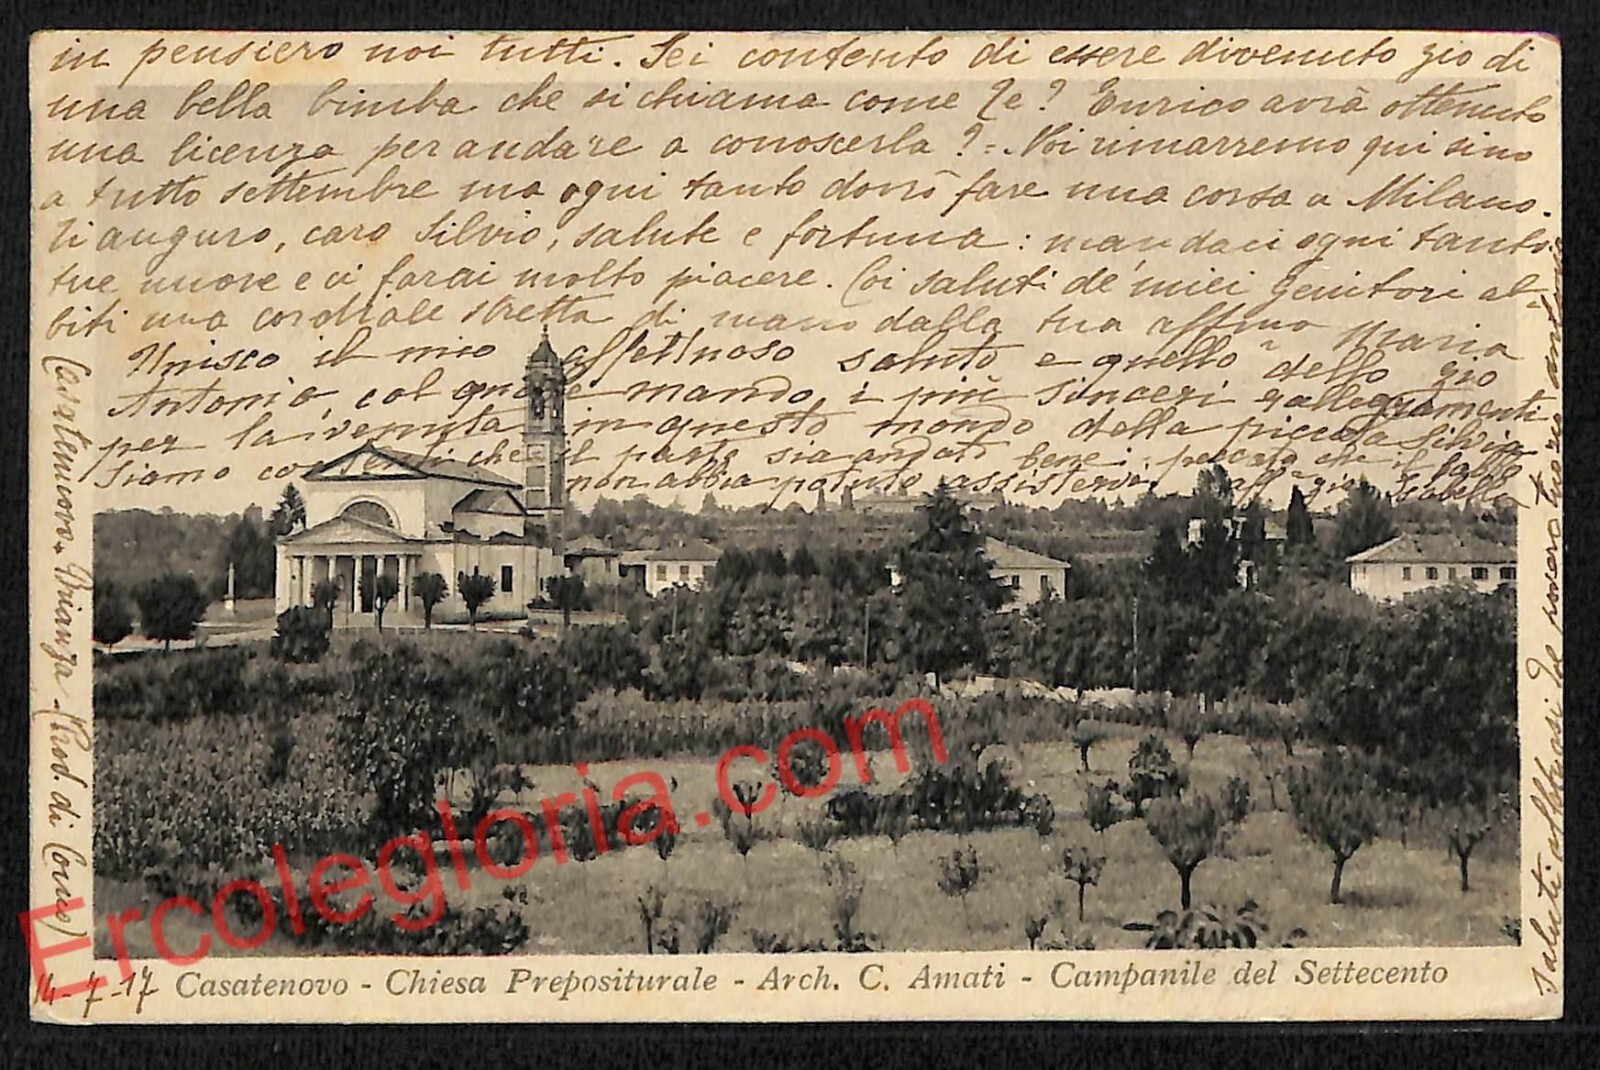 in pensiero noi tutti. Sei contento di essere divenuto zio di
una bella bimba che si chiama come te? Enrico avrà ottenuto
una licenza per andare a conoscerla? = Noi rimarremo qui sino
a tutto settembre ma ogni tanto dovrò fare una corsa a Milano.
Ti auguro, caro Silvio, salute e fortuna: mandaci ogni tanto
tue nuove e ci farai molto piacere. Coi saluti de' miei genitori ab=
biti una cordiale stretta di mano dalla tua affma Maria
Unisco il mio affettuoso saluto e quello dello zio
Antonio, col quale mando i più sinceri rallegramenti
per la venuta in questo mondo della piccola Silvia
Siamo contenti che il parto sia andato bene; peccato che il babbo
non abbia potuto assistervi. aff zia Isabella
Casatenovo - Brianza - (Prov. di Como)
14-7-17
Casatenovo - Chiesa Prepositurale - Arch. C. Amati - Campanile del Settecento
Saluti affettuosi dal tuo zio Antonio
Ercolegloria.com